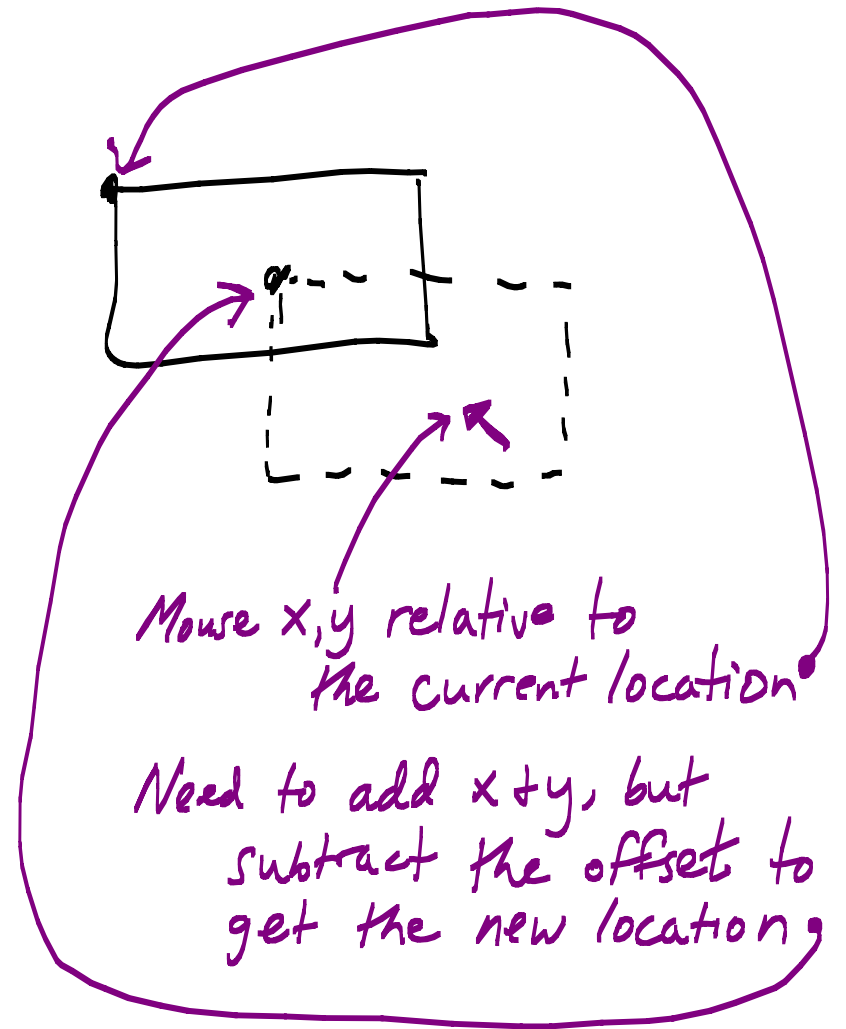 Mouse x,y relative to
the current location
Need to add x + y, but
subtract the offset to
get the new location